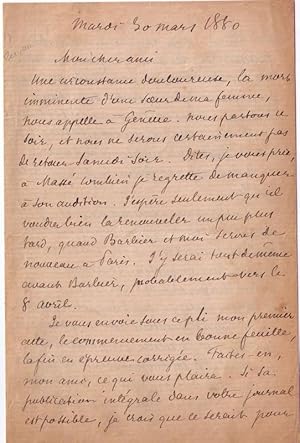 Mardi 30 mars 1880
Mon cher ami
Une circonstance douloureuse, la mort
imminente d'une sœur de ma femme,
nous appelle à Genève. Nous partons ce
soir, et nous ne serons certainement pas
de retour Samedi soir. Dites, je vous prie,
à Massé combien je regrette de manquer
à son audition. J'espère seulement qu'il
voudra bien la renouveler un peu plus
tard, quand Barbier et moi serons de
nouveau à Paris. J'y serai tout de même
avant Barbier, probablement vers le
8 avril.
Je vous envoie sous ce pli mon premier
acte, le commencement en bonne feuille,
la fin en épreuve corrigée. Faites-en,
mon ami, ce qui vous plaira. Si sa
publication intégrale dans votre journal
est possible, je crois que ce serait pour